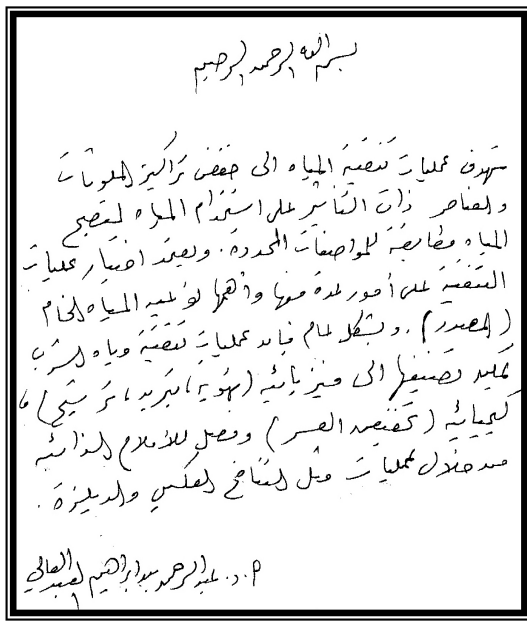 بسم الله الرحمن الرحيم
تهدف عمليات تنقية المياه الى خفض تراكيز الملوثات
والعناصر ذات التأثير على استخدام المياه لتصبح
المياه مطابقة للمواصفات المحددة. ويعتمد اختيار عمليات
التنقية على أمور عدة منها وأهمها نوعية المياه الخام
(المصدر). وبشكل عام فإن عمليات تنقية مياه الشرب
يمكن تصنيفها الى فيزيائية (تهوية، تبريد، ترشيح)
كيميائية (تخفيض العسر) وفصل للأملاح الذائبة
من خلال عمليات مثل التناضح العكسي والديلزة.
م.د. عبدالرحمن بن ابراهيم العبدالعالي